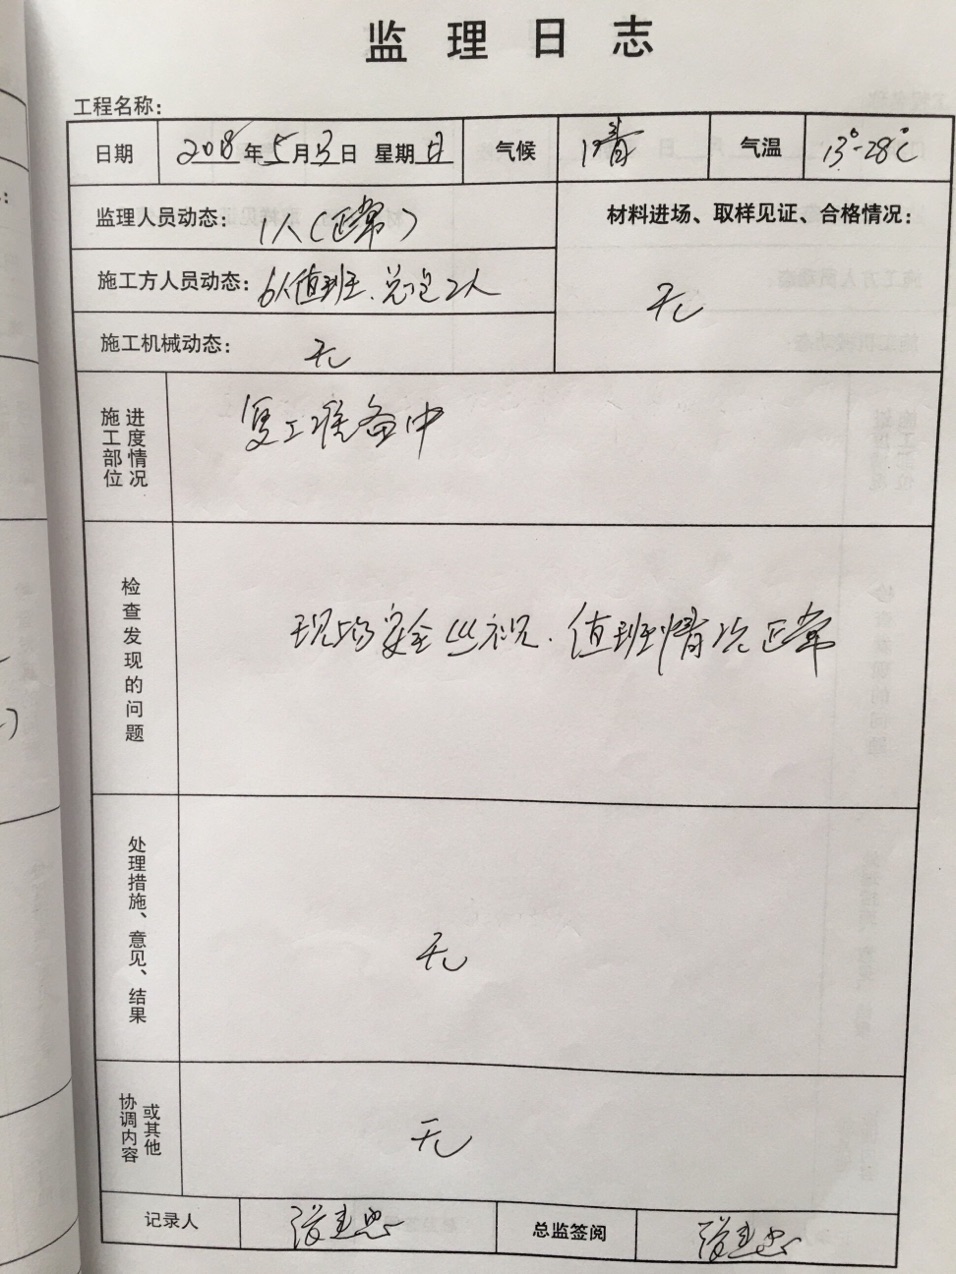 监理日志
工程名称：
日期 2018年5月13日 星期日 气候 晴 气温 13°-28°C
监理人员动态： 1人（正常）
材料进场、取样见证、合格情况：
无
施工方人员动态： 6人值班、总包2人
施工机械动态： 无
施工部位
进度情况
复工准备中
检查发现的问题
现场安全巡视、值班情况正常
处理措施、意见、结果
无
协调内容
或其他
无
记录人 张建忠 总监签阅 张建忠